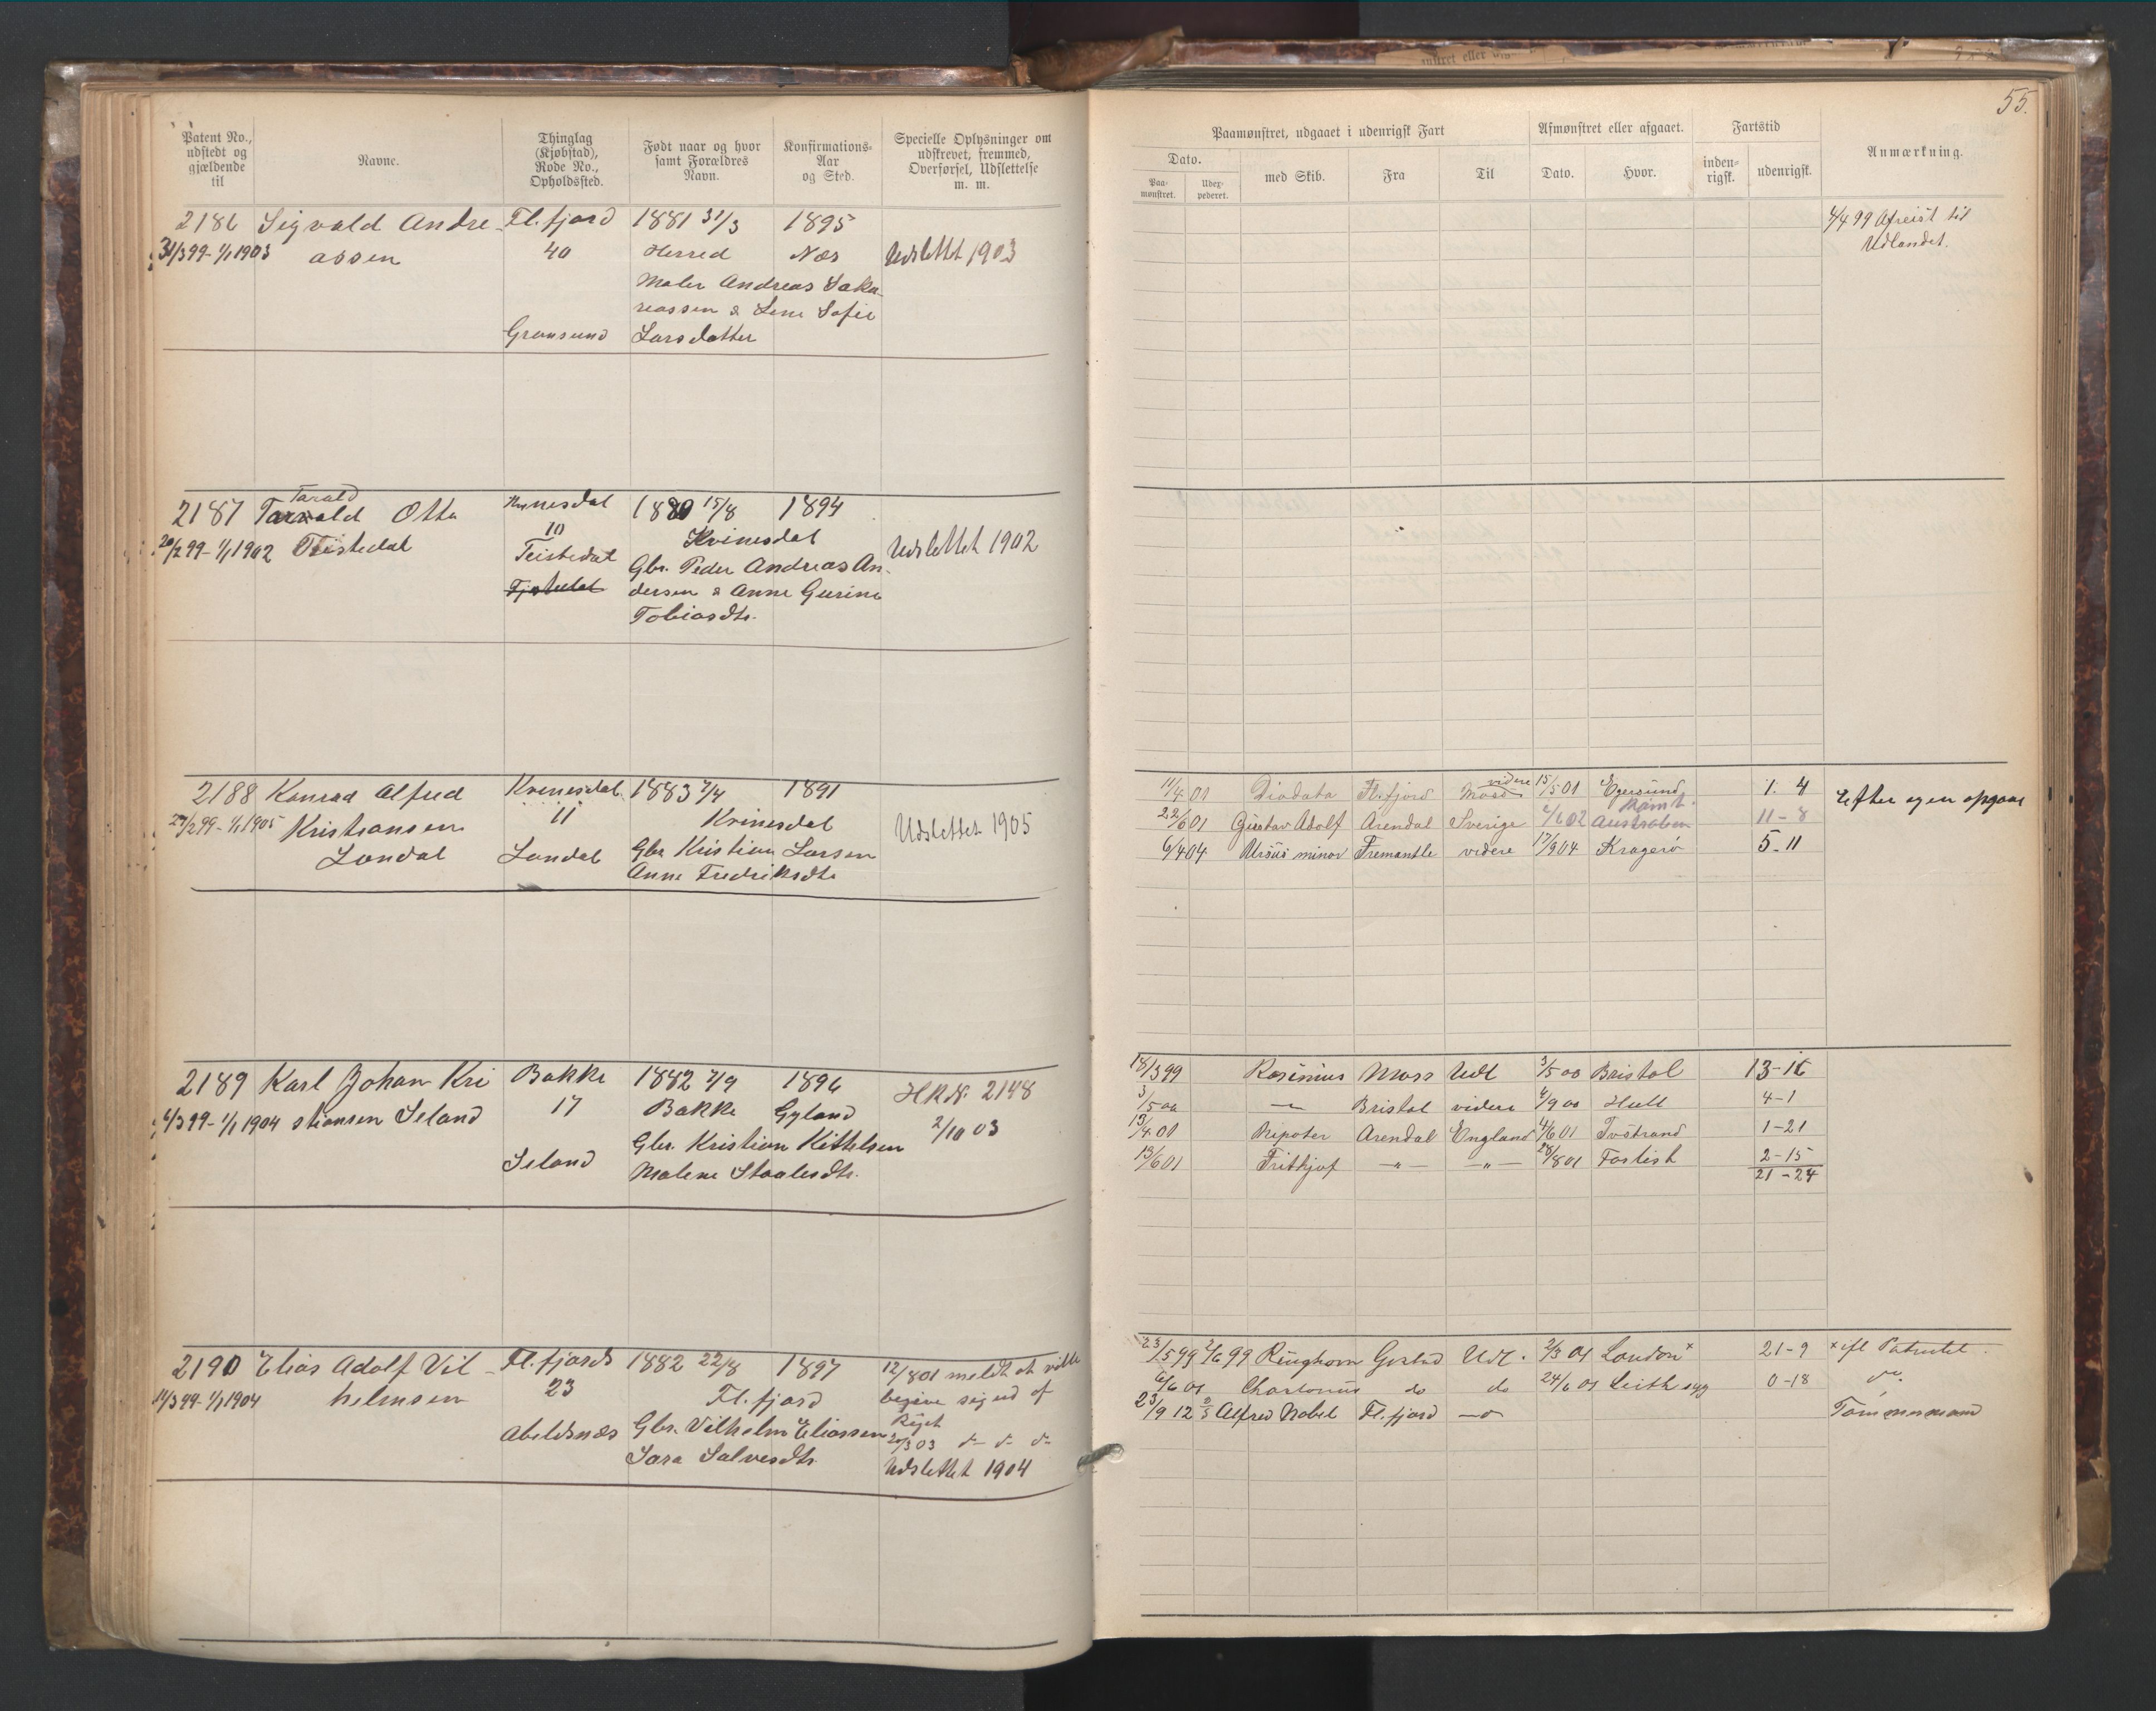 55.
Patent No., udstedt og gjældende til
Navne.
Thinglag (Kjøbstad), Rode No., Opholdssted.
Født naar og hvor samt Forældres Navn.
Konfirmations-Aar og Sted.
Specielle Oplysninger om udskrevet, fremmed, Overførsel, Udslettelse m. m.
Paamønstret, udgaaet i udenrigsk Fart
Afmønstret eller afgaaet.
Fartstid
Anmærkning.
Dato.
Paa-mønstret.
Udex-pederet.
med Skib.
Fra
Til
Dato.
Hvor.
inden-rigsk.
udenrigsk.
2186 Sigvald Andre- Fl.fjord 1881 31/3 1895
31/3 99 - 1/1 1903 assen 40 Herred Nes Udslettet 1903
Maler Andreas Saka-
reassen & Lene Sofie
Gransund Larsdatter
4/4 99 Afreist til
Udlandet.
2187 Tarald Otto Kvinesdal 1880 15/8 1894
Tarald
20/2 99 - 1/1 1902 Teistedal 10 Kvinesdal Udslettet 1902
Teistedal Gbr. Peder Andreas An-
dersen & Anne Gurine
Tobiasdtr.
2188 Konrad Alfred Kvinesdal 1883 7/4 1891
1/1 1905 Kristiansen 11 Kvinesdal Udslettet 1905
Londal Londal Gbr. Kristian Larsen
Anne Fredriksdtr
11/4 01 Diodata Fl.fjord Moss videre 15/5 01 Egersund 1. 4 Efter egen opgave
22/6 01 Gustav Adolf Arendal Sverige 2/6 02 Australien Rømt. 11-8
6/4 04 Ursus minor Fremantle videre 17/9 04 Kragerø 5-11
2189 Karl Johan Kri Bakke 1882 7/9 1896 H.R.N. 2148
6/3 99 - 1/1 1904 stiansen Seland 17 Bakke Gyland 2/10 03
Gbr. Kristian Kittelsen
Seland Malene Staalesdtr.
18/3 99 Rosinius Moss Udl 3/5 00 Bristol
3/5 00 — Bristol videre 4/9 00 Hull 4-1
13/4 01 Nipoter Arendal England 4/6 01 Tvestrand 1-21
13/6 01 Frithjof —"— —"— 28/8 01 2-15
21-24
2190 Elias Adolf Vil- Fl.fjord 1882 22/8 1897 12/8 01 meldt at ville
11/3 99 - 1/1 1904 helmsen 23 Fl.fjord begive sig ud af
Riget
Abelsnæs Gbr. Vilhelm Eliassen 20/3 03 d- d- d-
Sara Salvesdtr. Udslettet 1904
23/5 99 2/6 99 Ringhorn Udl. 2/3 01 London x 21-9 x ifl Patentet.
6/6 01 do do 24/6 01 Leith syg 0-18 do.
23/9 12 Alfred Nobel Fl.fjord —o Tømmermand